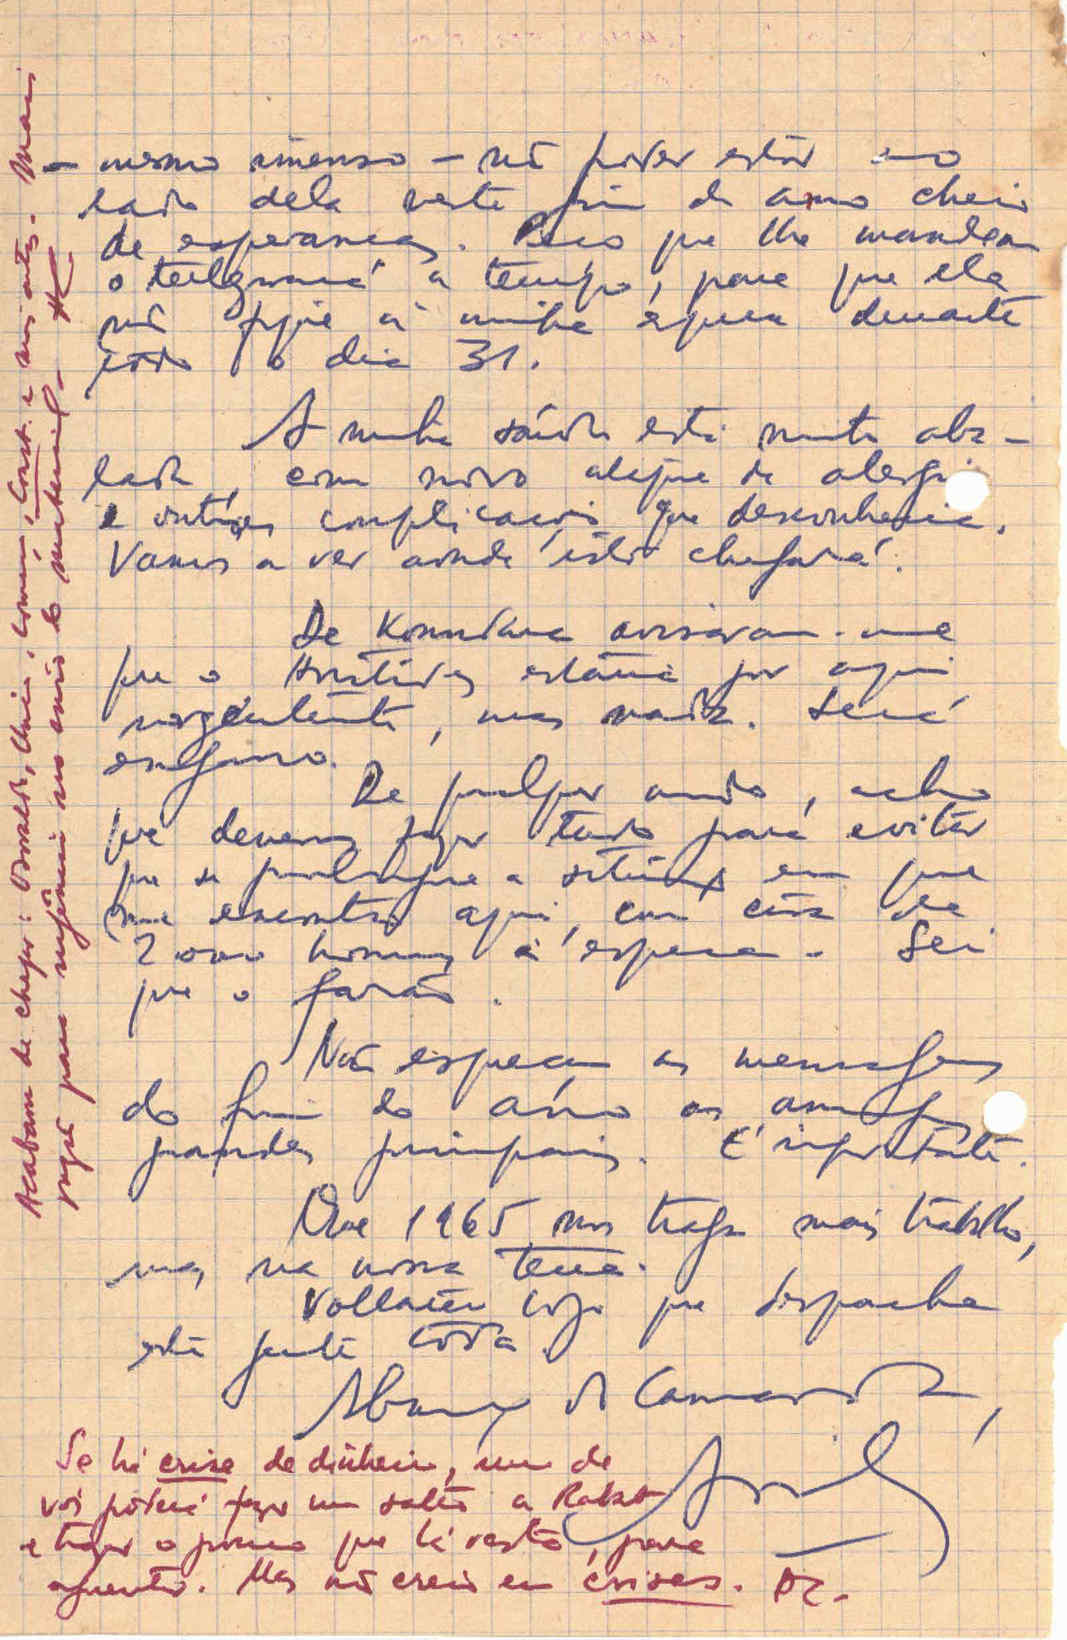 – mesmo imenso – não poder estar ao
lado dela neste fim de ano cheio
de esperanças. Peço que lhe mandem
o telegrama a tempo, para que ela
não fique à minha espera durante
todo o dia 31.
A minha saúde está muito aba-
lada, com novo ataque de alergia
e outras complicações que desconhecia.
Vamos a ver aonde isto chegará.
De Konakry avisaram-me
que o Aristides estaria por aqui
urgentemente, mas nada. Será
engano.
De qualquer modo, acho
que devemos fazer tudo para evitar
que se prolongue a situação em que
me encontro aqui, com cerca de
2 000 homens à espera. Sei
que o farão.
Não esqueçam as mensagens
do fim do ano aos amigos
grandes principais. É importante.
Que 1965 nos traga mais trabalho,
mas na nossa terra.
Voltarei logo que despache
esta gente toda.
Abraço do Camarada,
Se há crise de dinheiro, um de
vós poderá fazer um salto a Rabat
e trazer o pouco que lá resta, para
aguentar. Mas não creio em crises. AC.-
Acabam de chegar: Osvaldo, Chico, , Const. e uns outros. Mais
para no envio do material – AC